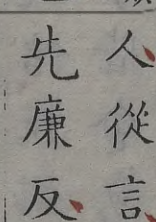 人從言
先廉反